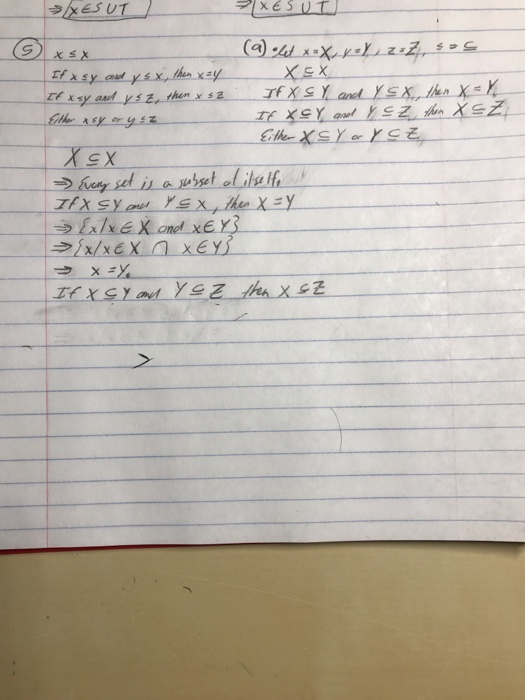 ⇒ x∈S∪T ⇒ x∈S∪T
⑤ x ≤ x
If x ≤ y and y ≤ x, then x=y
If x ≤ y and y ≤ z, then x ≤ z
Either x ≤ y or y ≤ z
(a) • Let x=X, y=Y, z=Z, ≤ = ⊆
X ⊆ X
If X ⊆ Y and Y ⊆ X, then X = Y.
If X ⊆ Y and Y ⊆ Z, then X ⊆ Z
Either X ⊆ Y or Y ⊆ Z
X ⊆ X
⇒ Every set is a subset of itself.
If X ⊆ Y and Y ⊆ X, then X = Y
⇒ {x/x ∈ X and x∈Y}
⇒ {x/x∈X ∩ x∈Y}
⇒ x = Y.
If X ⊆ Y and Y ⊆ Z then X ⊆ Z
>